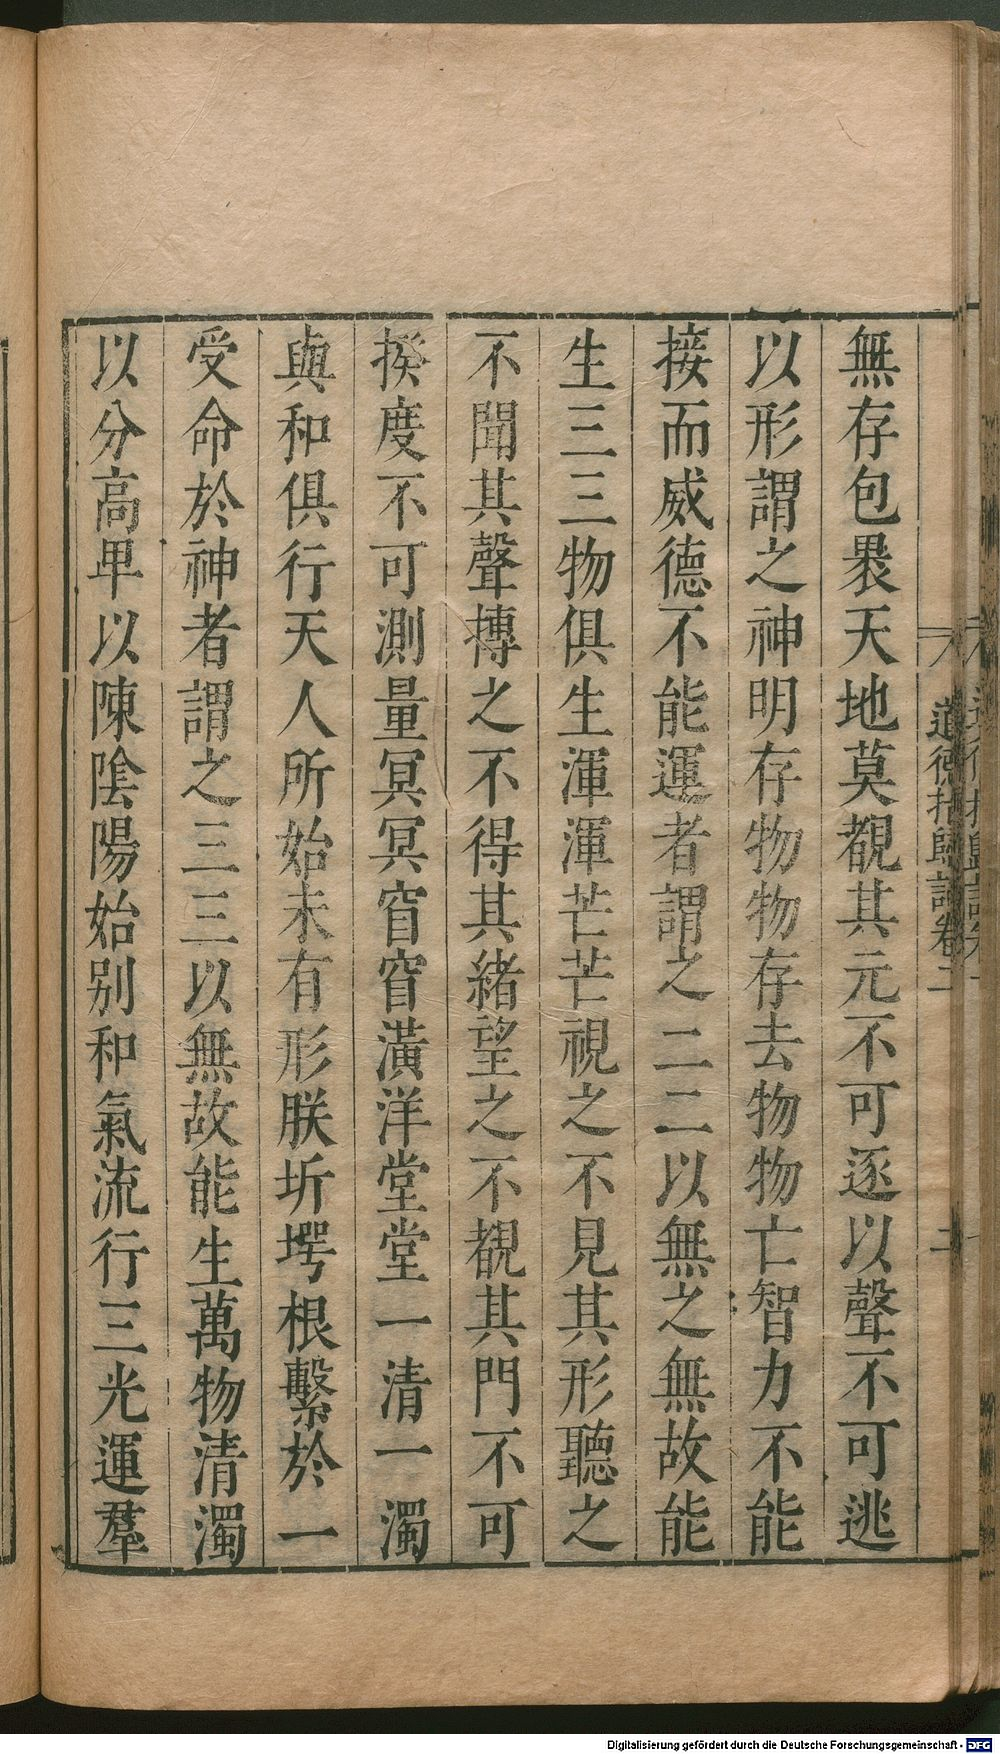 道德指歸論卷二
二
無存包裹天地莫覩其元不可逐以聲不可逃
以形謂之神明存物物存去物物亡智力不能
接而威德不能運者謂之二二以無之無故能
生三三物俱生渾渾芒芒視之不見其形聽之
不聞其聲搏之不得其緒望之不覩其門不可
揆度不可測量冥冥窅窅潢洋堂堂一清一濁
與和俱行天人所始未有形朕圻堮根繫於一
受命於神者謂之三三以無故能生萬物清濁
以分高卑以陳陰陽始別和氣流行三光運羣
Digitalisierung gefördert durch die Deutsche Forschungsgemeinschaft - DFG